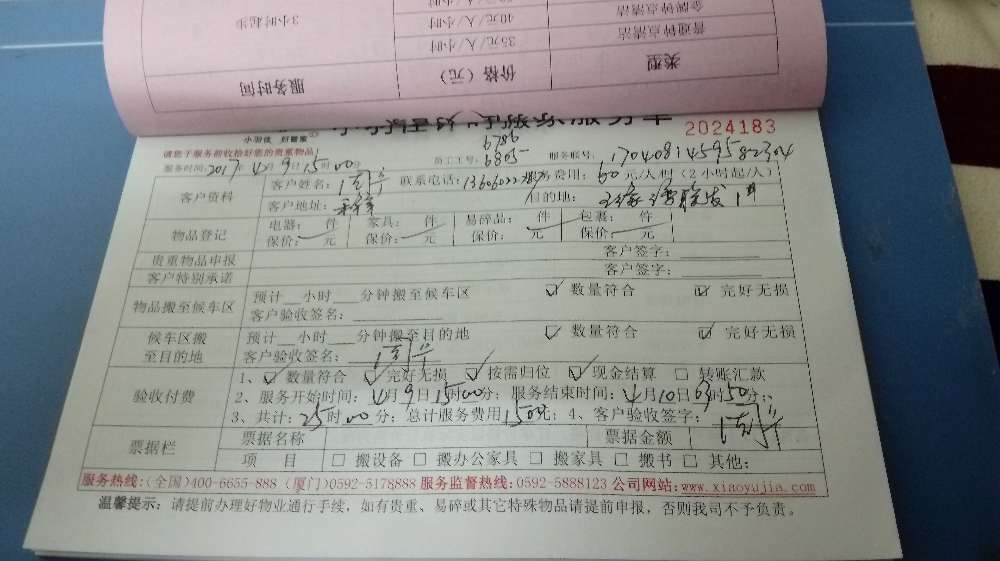 普通钟点清洁 35元/人/小时
金牌钟点清洁 40元/人/小时 3小时起步
类型 价格（元） 服务时间
小羽佳 好管家
2024183
请您于服务前收检好您的贵重物品！
6786
员工工号：6805 服务账号：
服务时间：2017年4月9日15时00分
客户资料 客户姓名： 联系电话： 服务费用：60元/人/时（2小时起/人）
客户地址： 目的地：
物品登记 电器： 件 家具： 件 易碎品： 件 包裹： 件
保价： 元 保价： 元 保价： 元 保价： 元
贵重物品申报 客户签字：
客户特别承诺 客户签字：
物品搬至候车区 预计__小时___分钟搬至候车区 ☑ 数量符合 ☑ 完好无损
客户验收签名：
候车区搬至目的地 预计__小时___分钟搬至目的地 ☑ 数量符合 ☑ 完好无损
客户验收签名：
验收付费 1、☑ 数量符合 ☑ 完好无损 ☑ 按需归位 ☑ 现金结算 □ 转账汇款
2、服务开始时间：4月9日15时00分；服务结束时间：4月10日 时50分；
3、共计：25时00分；总计服务费用1500元；4、客户验收签字：
票据栏 票据名称 票据金额
项 目 □ 搬设备 □ 搬办公家具 □ 搬家具 □ 搬书 □ 其他：
服务热线：（全国）400-6655-888（厦门）0592-5178888 服务监督热线：0592-5888123 公司网站：www.xiaoyujia.com
温馨提示：请提前办理好物业通行手续，如有贵重、易碎或其它特殊物品请提前申报，否则我司不予负责。